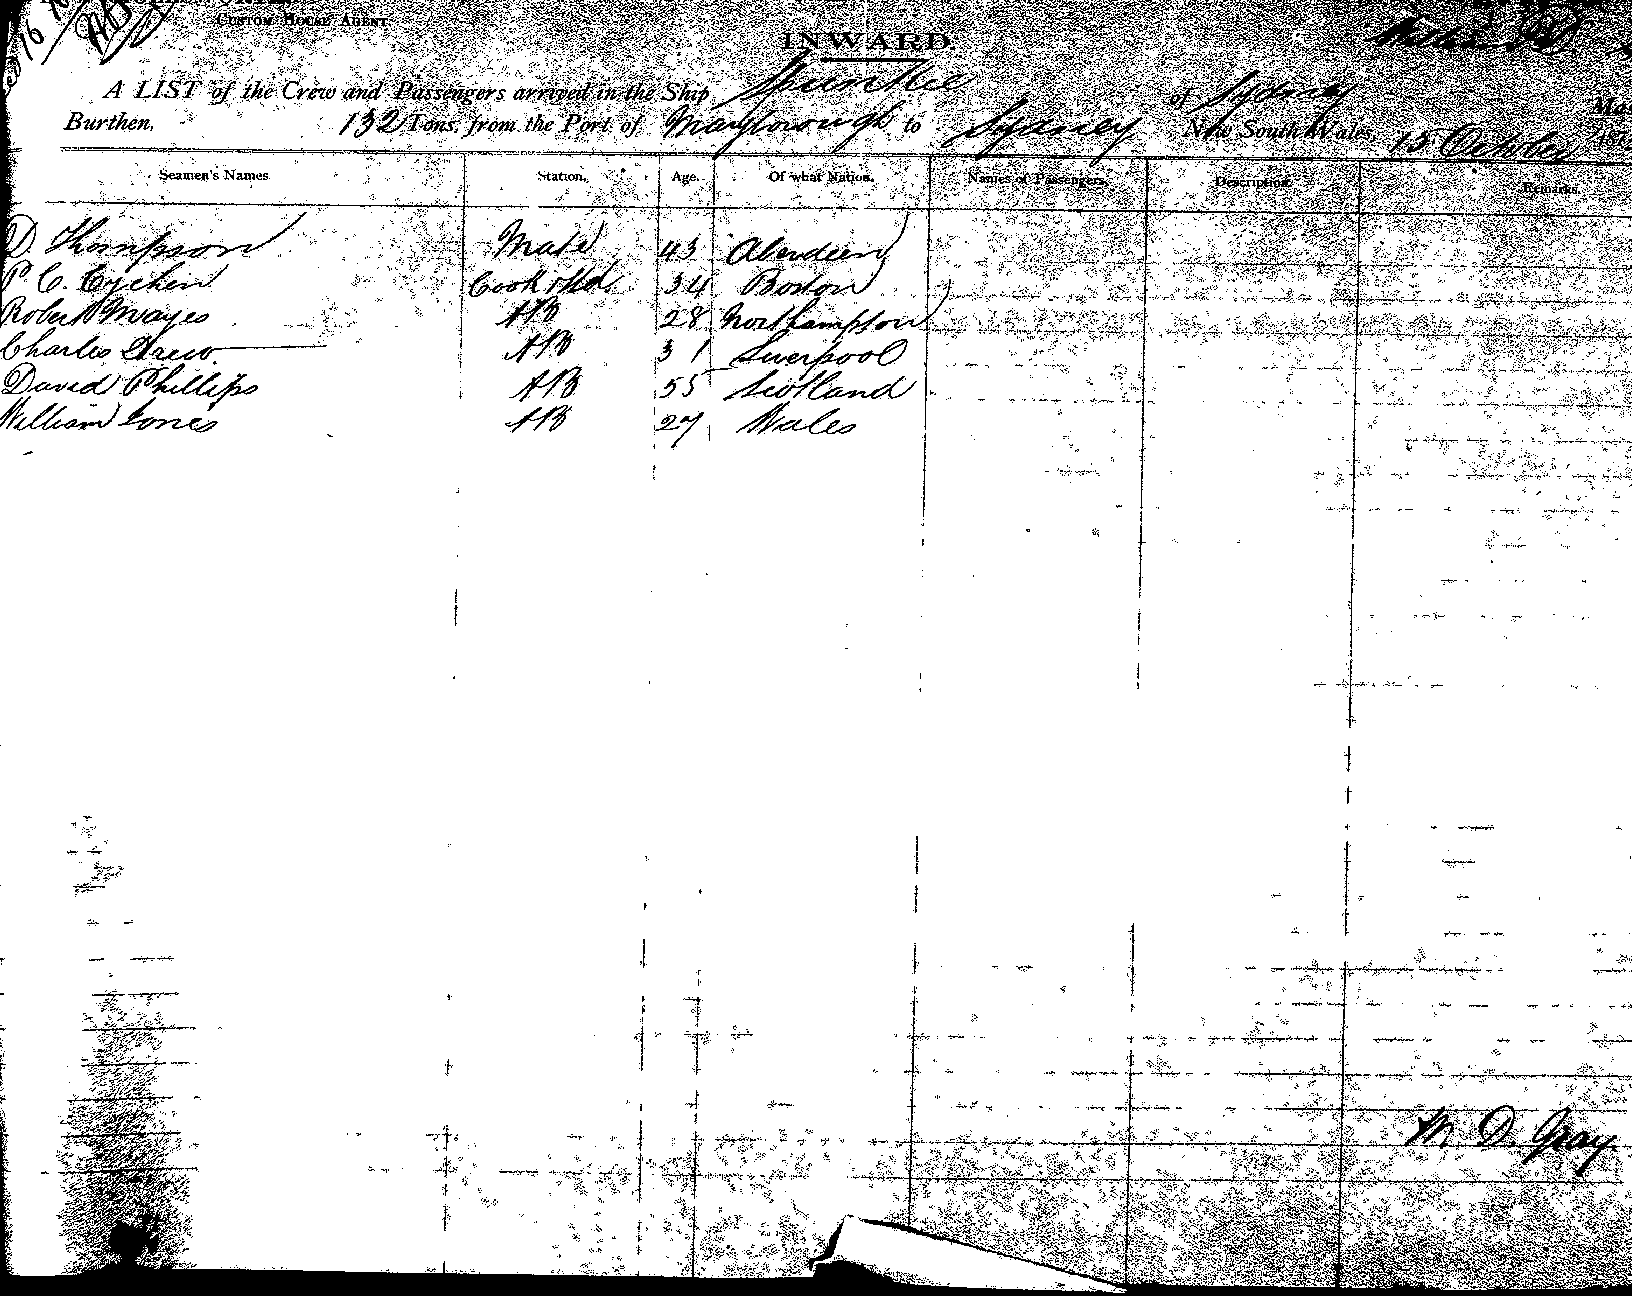 CUSTOM HOUSE AGENT.
INWARD.
A LIST of the Crew and Passengers arrived in the Ship of Sydney
Burthen, 132 Tons, from the Port of Maryborough to Sydney New South Wales, 15 October
Seamen's Names Station. Age. Of what Nation. Names of Passengers. Description. Remarks.
D. Thompson Mate 43 Aberdeen
P. C. Cook & Std 34 Boston
Robert Mayes AB 28 Northampton
Charles Drew AB 31 Liverpool
David Phillips AB 55 Scotland
William Jones AB 27 Wales
M D Gray